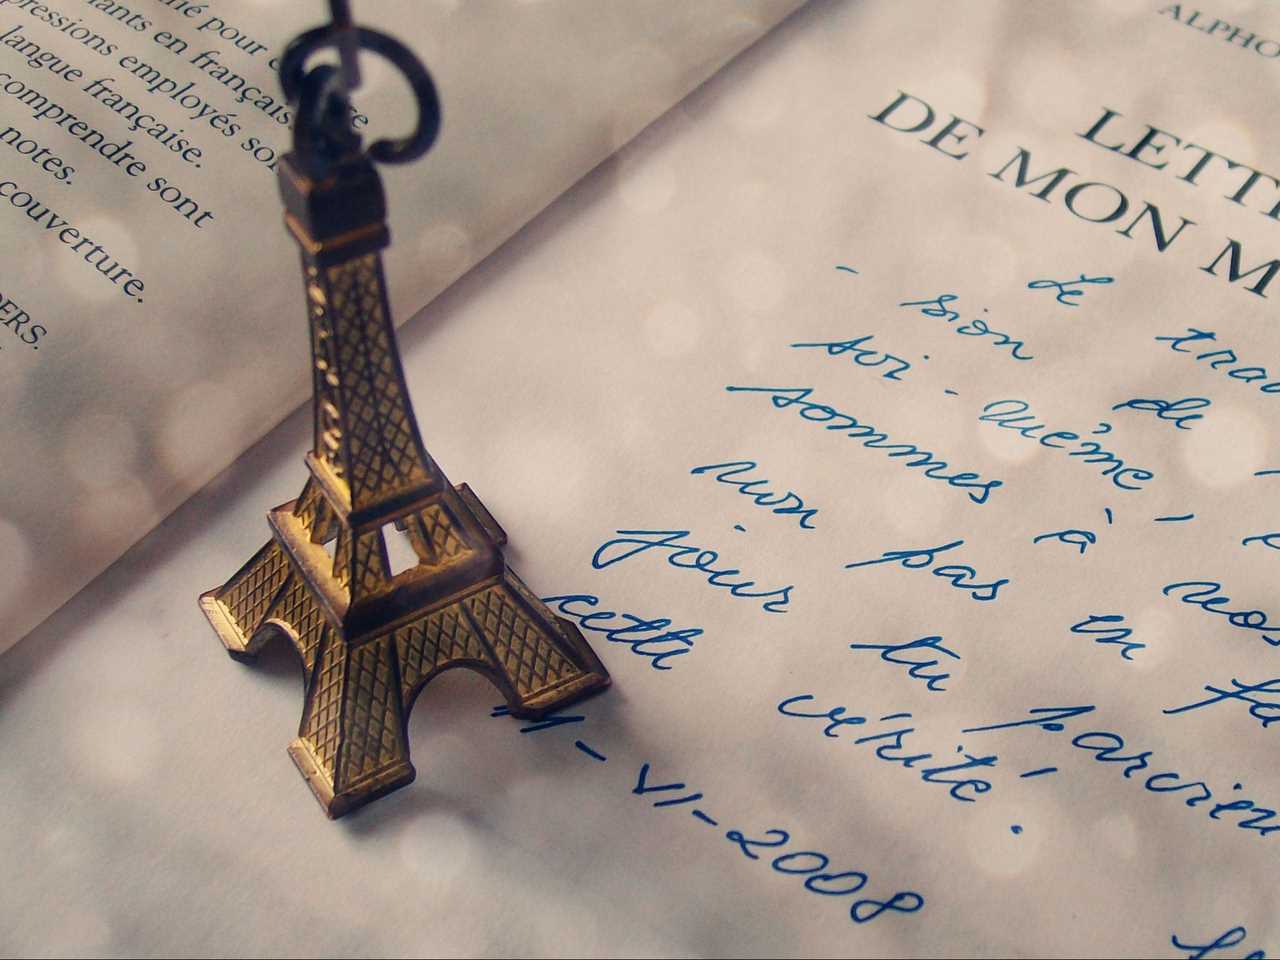 pour
en français.
pressions employés
langue française.
comprendre sont
notes.
couverture.
DERS.
ALPHO
LETT
DE MON M
Le
- sion de
soi-même,
sommes à nos
non pas en fa
jour tu parvien
cette vérité!
VI-2008